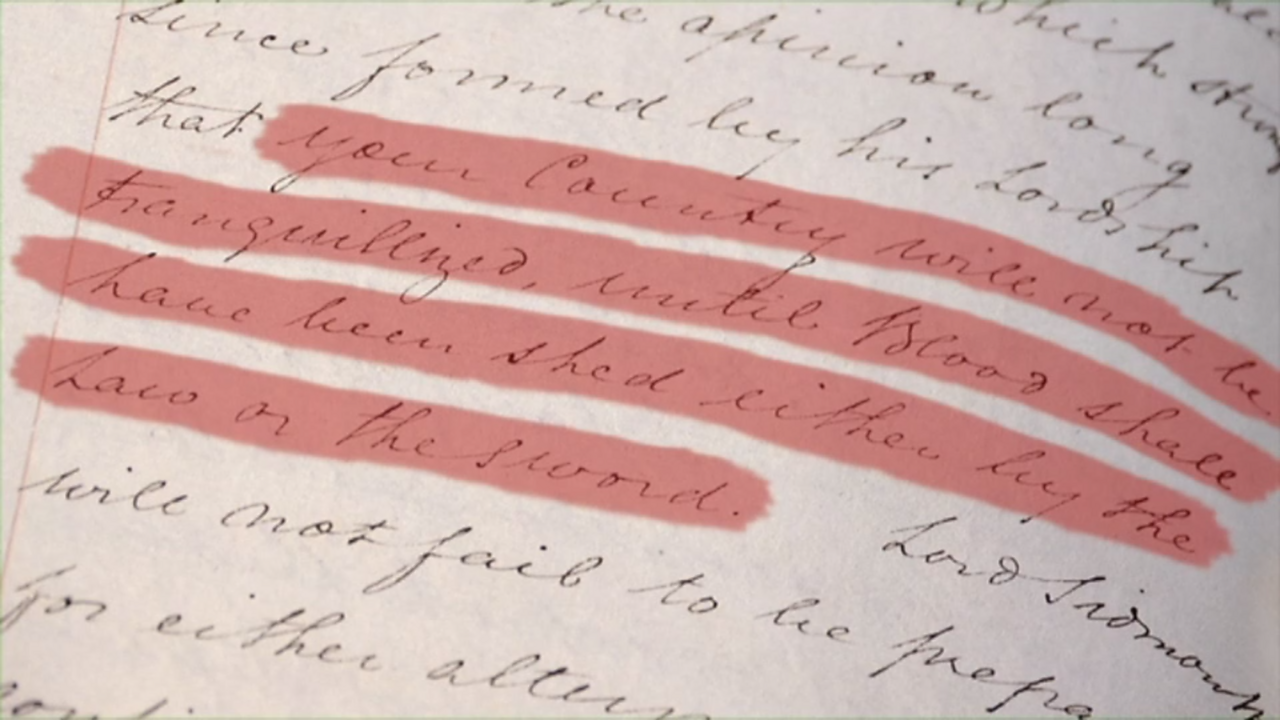 the opinion long
which strong
since formed by his Lordship
that your Country will not be
tranquillized, until Blood shall
have been shed either by the
Law or the sword. Lord Sidmouth
will not fail to be prepa
for either altern